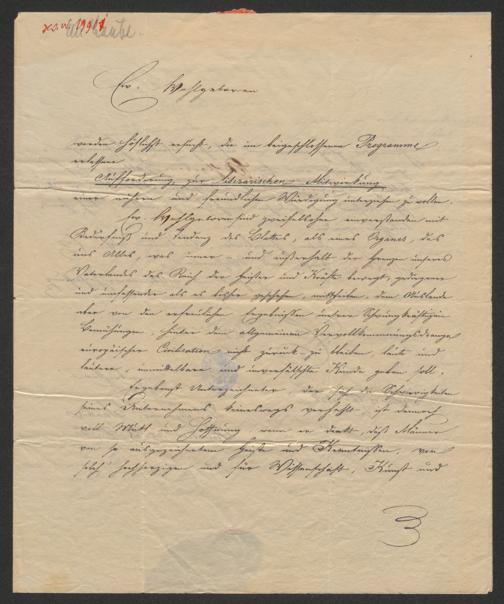 Er. Wohlgeboren
werden höflichst ersucht, die im beigeschlossenen Programme
erlassene
Aufforderung zur literarischen Mitwirkung
einer nähern und freundlichen Würdigung unterziehen zu wollen.
Er. Wohlgeboren sind zweifelsohne einverstanden mit
Bedürfniß und Tendenz des Blattes, als eines Organes, das
uns Alles, was inner- und außerhalb der Grenze unsers
Vaterlandes das Reich der Geister und Kräfte bewegt, gediegener
und umfassender als es bisher geschehen, mittheilen, dem Auslande
aber von den erfreulichen Ergebnissen unserer
Bemühungen, hinter dem allgemeinen Vervollkommnungsdrange
europäischer Civilisation nicht zurück zu bleiben, laute und
lautere, unmittelbare und unverfälschte Kunde geben soll.
Ergebenst Unterzeichneter, der sich die Schwierigkeiten
seines Unternehmens keineswegs verhehlt, ist dennoch
voll Muth und Hoffnung, wenn er denkt daß Männer
von so ausgezeichnetem Geiste und Kenntnissen, von
solch' hochherzigen und für Wissenschaft, Kunst und